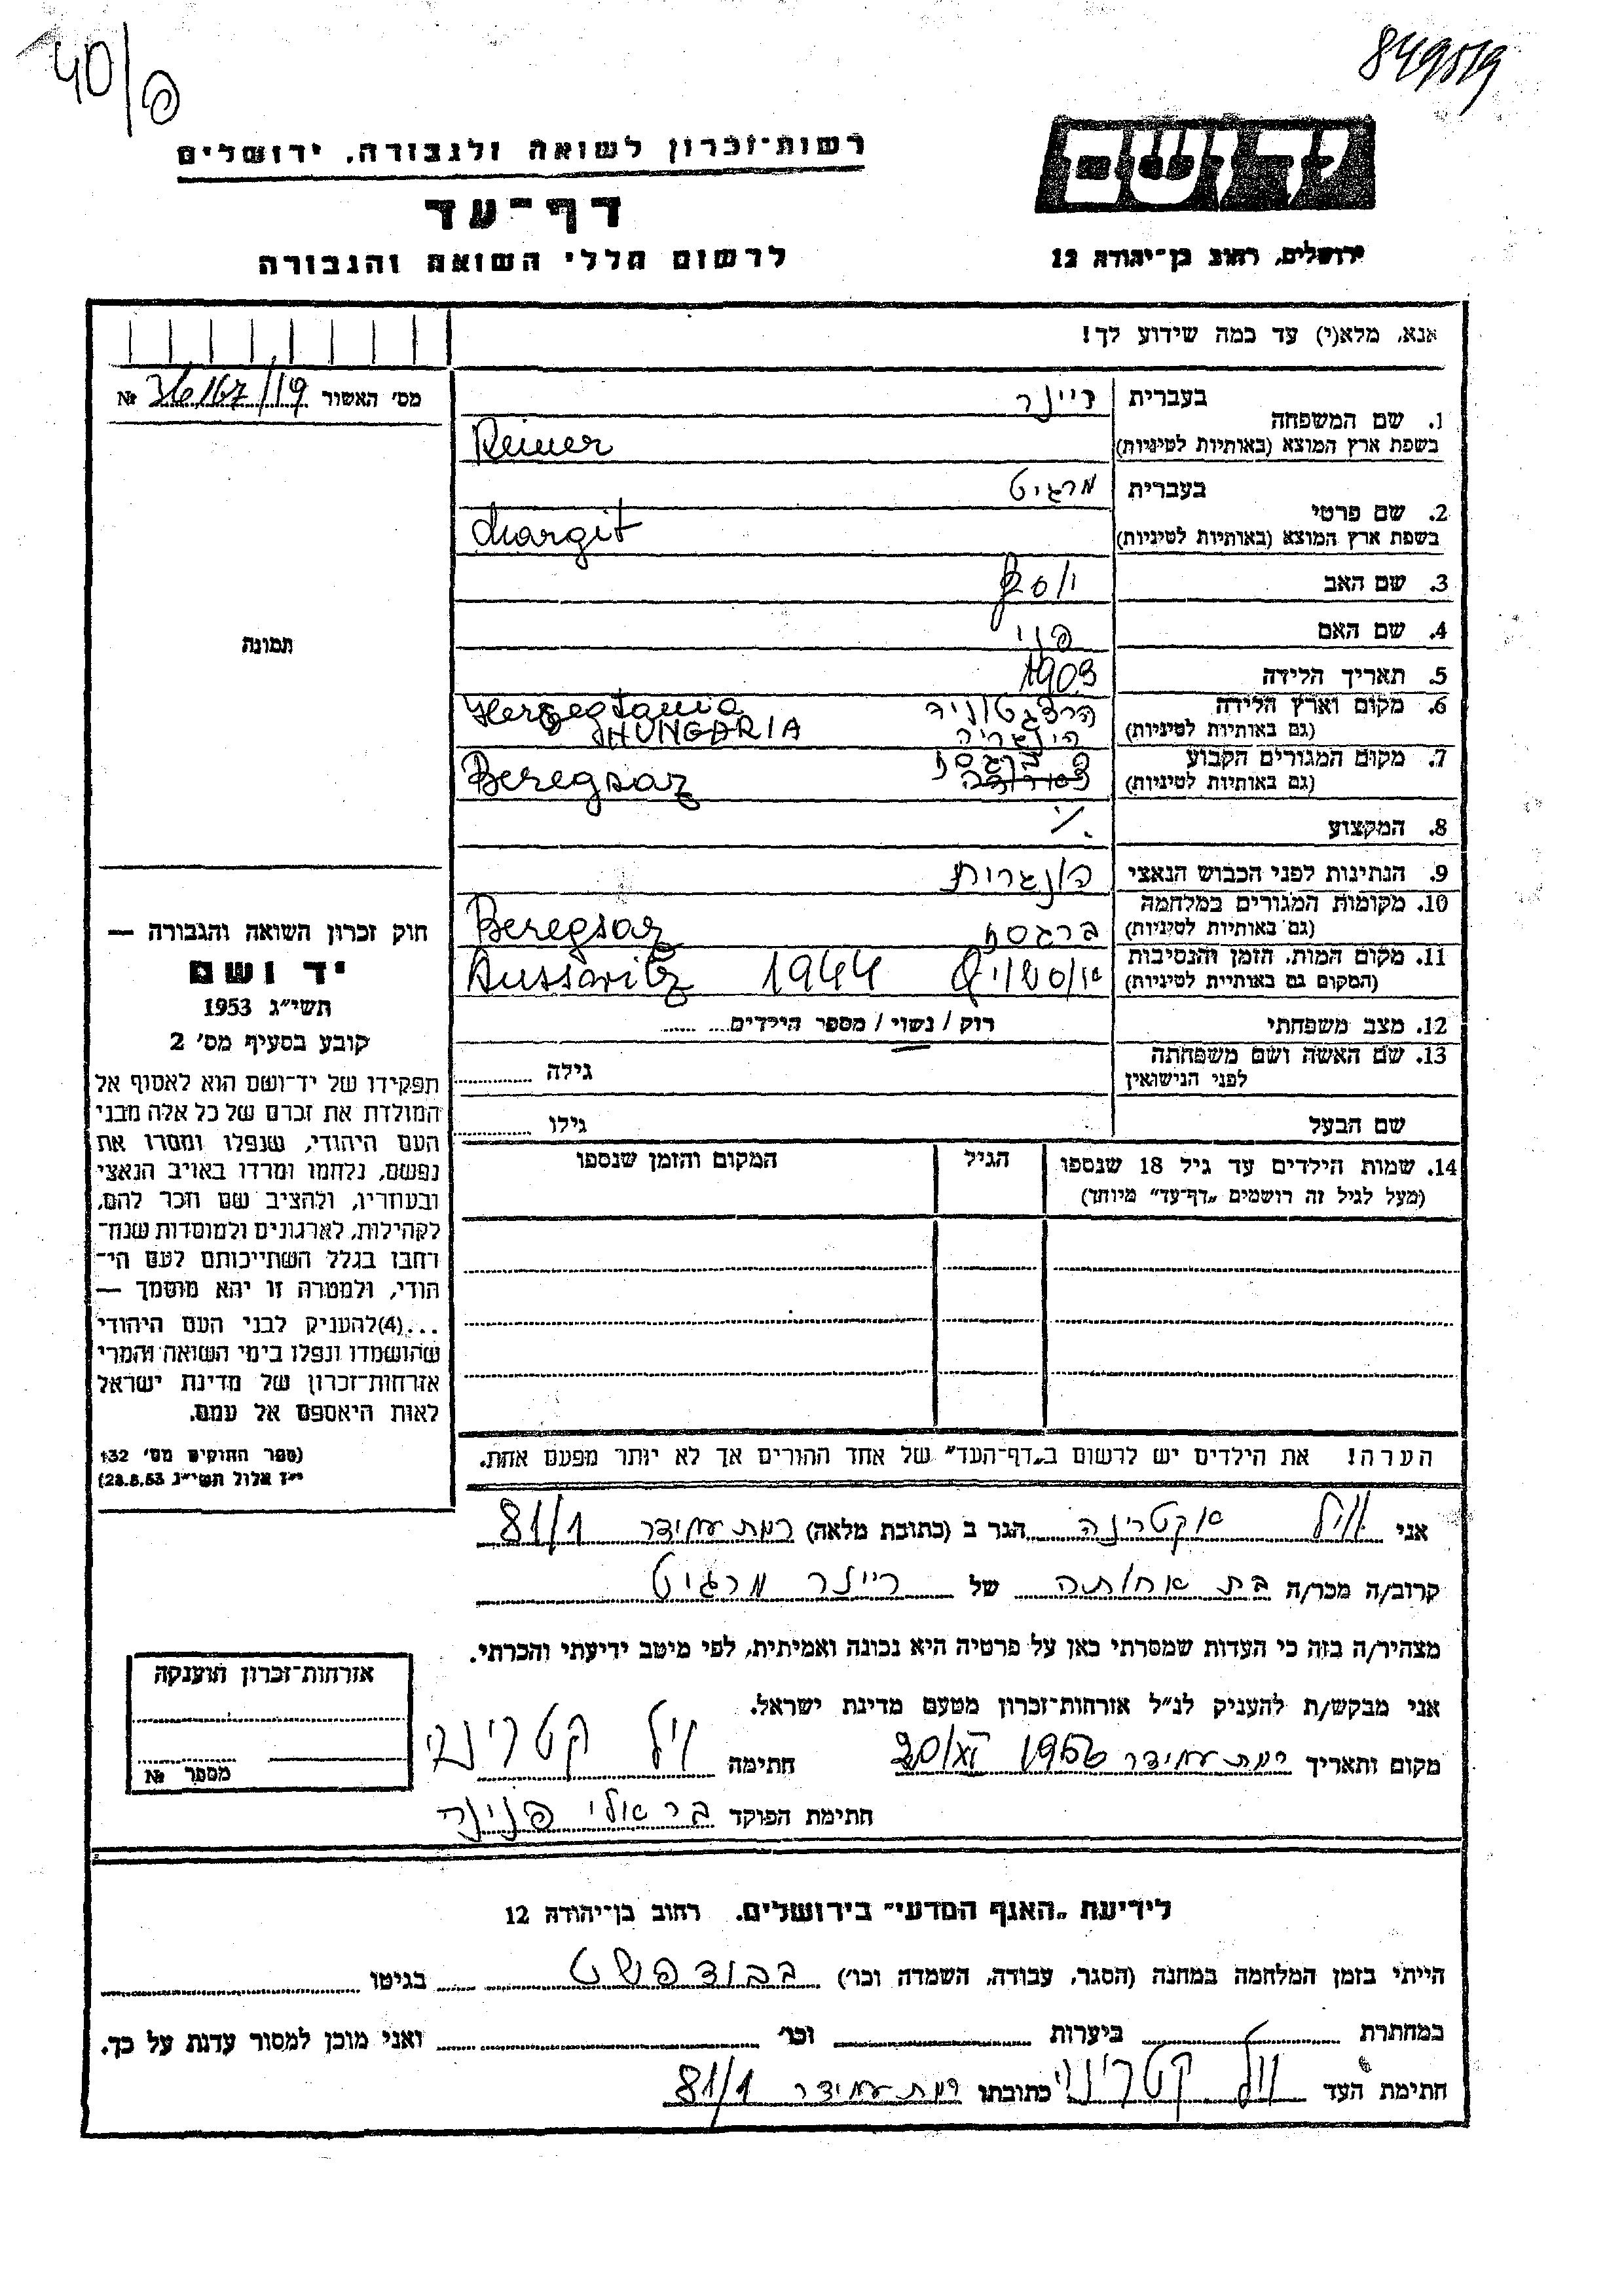 40/פ
849519
רשות־זכרון לשואה ולגבורה, ירושלים
יד ושם
דף־עד
לרשום חללי השואה והגבורה
ירושלים, רחוב בן־יהודה 12
אנא, מלא(י) עד כמה שידוע לך!
מס' האשור 36167/19 №
1. שם המשפחה בעברית ריינר
בשפת ארץ המוצא (באותיות לטיניות) Reiner
2. שם פרטי בעברית מרגיט
בשפת ארץ המוצא (באותיות לטיניות) Margit
3. שם האב יוסף
4. שם האם פני
תמונה
5. תאריך הלידה 1903
6. מקום וארץ הלידה
(גם באותיות לטיניות) הונגריה HUNGARIA
7. מקום המגורים הקבוע
(גם באותיות לטיניות) ברגסז Beregsaz
8. המקצוע ./.
9. הנתינות לפני הכבוש הנאצי הונגרית
10. מקומות המגורים במלחמה
(גם באותיות לטיניות) ברגסז Beregsaz
11. מקום המות, הזמן והנסיבות
(המקום גם באותיית לטיניות) 1944 Aussavitz
12. מצב משפחתי רוק / נשוי / מספר הילדים.... ......
13. שם האשה ושם משפחתה
לפני הנישואין גילה
שם הבעל גילו
14. שמות הילדים עד גיל 18 שנספו הגיל המקום והזמן שנספו
(מעל לגיל זה רושמים „דף־עד" מיוחד)
חוק זכרון השואה והגבורה —
יד ושם
תשי"ג 1953
קובע בסעיף מס' 2
תפקידו של יד־ושם הוא לאסוף אל
המולדת את זכרם של כל אלה מבני
העם היהודי, שנפלו ומסרו את
נפשם, נלחמו ומרדו באויב הנאצי
ובעוזריו, ולהציב שם וזכר להם,
לקהילות, לארגונים ולמוסדות שנח־
רבו בגלל השתייכותם לעם הי־
הודי, ולמטרה זו יהא מוסמך —
...(4)להעניק לבני העם היהודי
שהושמדו ונפלו בימי השואה והמרי
אזרחות־זכרון של מדינת ישראל
לאות היאספם אל עמם.
(ספר החוקים מס' 132
י"ז אלול תשי"ג 28.8.53)
הערה! את הילדים יש לרשום ב„דף־העד" של אחד ההורים אך לא יותר מפעם אחת.
אני ווייל הגר ב (כתובת מלאה) רמת עמידר 81/1
קרוב/ה מכר/ה בת אחותה של ריינר מרגיט
מצהיר/ה בזה כי העדות שמסרתי כאן על פרטיה היא נכונה ואמיתית, לפי מיטב ידיעתי והכרתי.
אני מבקש/ת להעניק לנ"ל אזרחות־זכרון מטעם מדינת ישראל.
מקום ותאריך רמת עמידר 1956 20/XI חתימה
חתימת הפוקד פנינה
אזרחות־זכרון הוענקה
מספר №
לידיעת „האגף המדעי" בירושלים, רחוב בן־יהודה 12
הייתי בזמן המלחמה במחנה (הסגר, עבודה, השמדה וכו') בבודפשט בגיטו
במחתרת ביערות וכו' ואני מוכן למסור עדות על כך.
חתימת העד כתובתו רמת עמידר 81/1